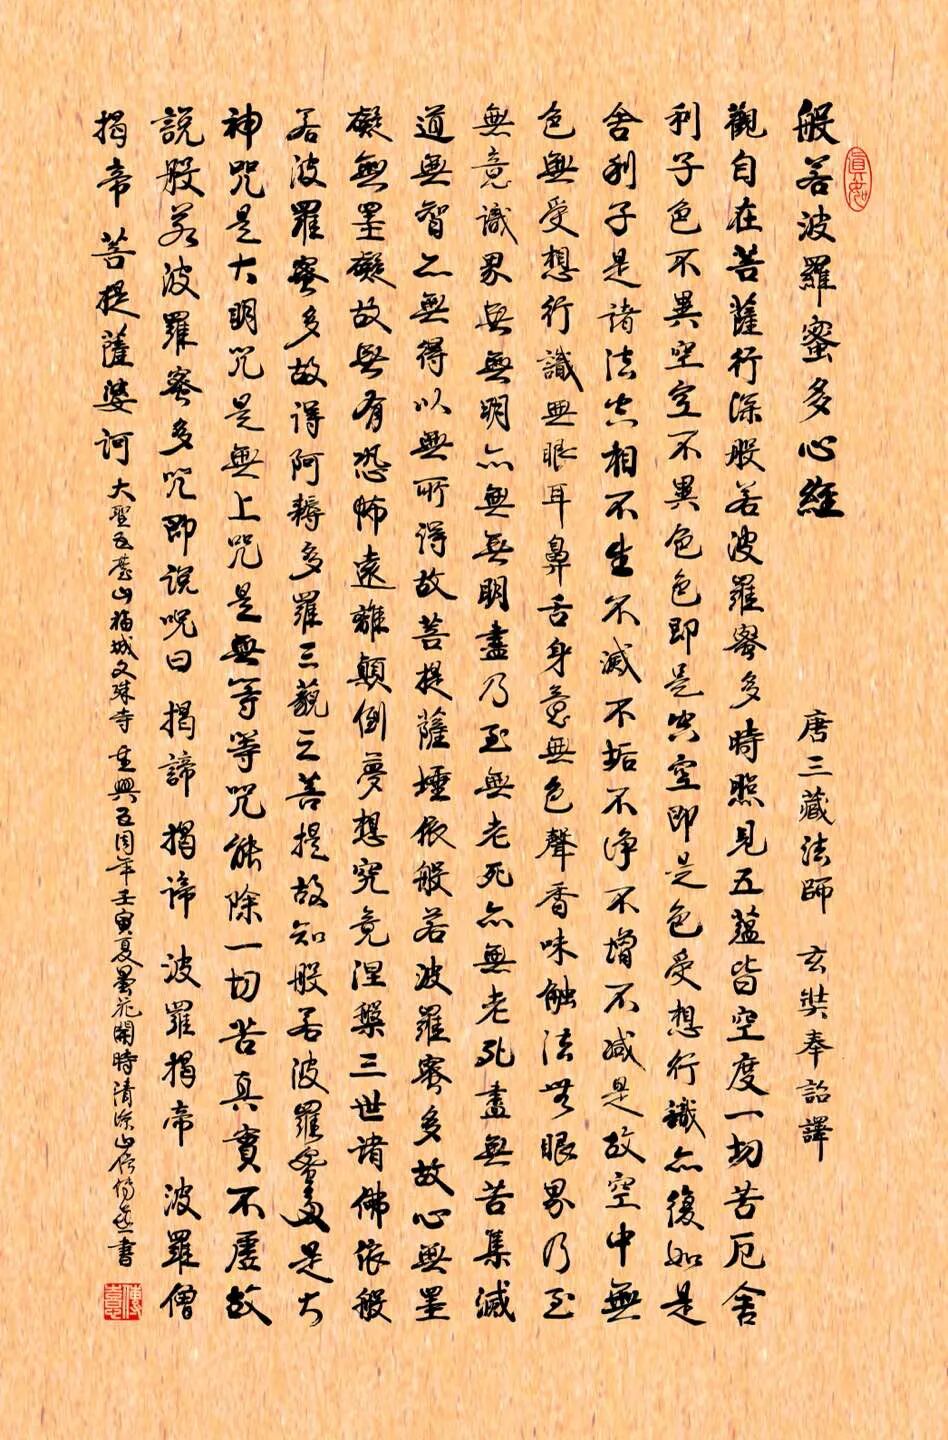 眞如
般若波羅蜜多心經 唐三藏法師 玄奘奉詔譯
觀自在菩薩行深般若波羅蜜多時照見五蘊皆空度一切苦厄舍
利子色不異空空不異色色即是空空即是色受想行識亦復如是
舍利子是諸法空相不生不滅不垢不淨不增不減是故空中無
色無受想行識無眼耳鼻舌身意無色聲香味触法無眼界乃至
無意識界無無明亦無無明盡乃至無老死亦無老死盡無苦集滅
道無智亦無得以無所得故菩提薩埵依般若波羅蜜多故心無罣
礙無罣礙故無有恐怖遠離顛倒夢想究竟涅槃三世諸佛依般
若波羅蜜多故得阿耨多羅三藐三菩提故知般若波羅蜜多是大
神咒是大明咒是無上咒是無等等咒能除一切苦真實不虛故
說般若波羅蜜多咒即說咒曰 揭諦揭諦 波羅揭帝 波羅僧
揭帝 菩提薩婆訶 大聖五臺山福城文殊寺 重興五周年壬寅夏曇花開時清涼山居傳意書
傳意